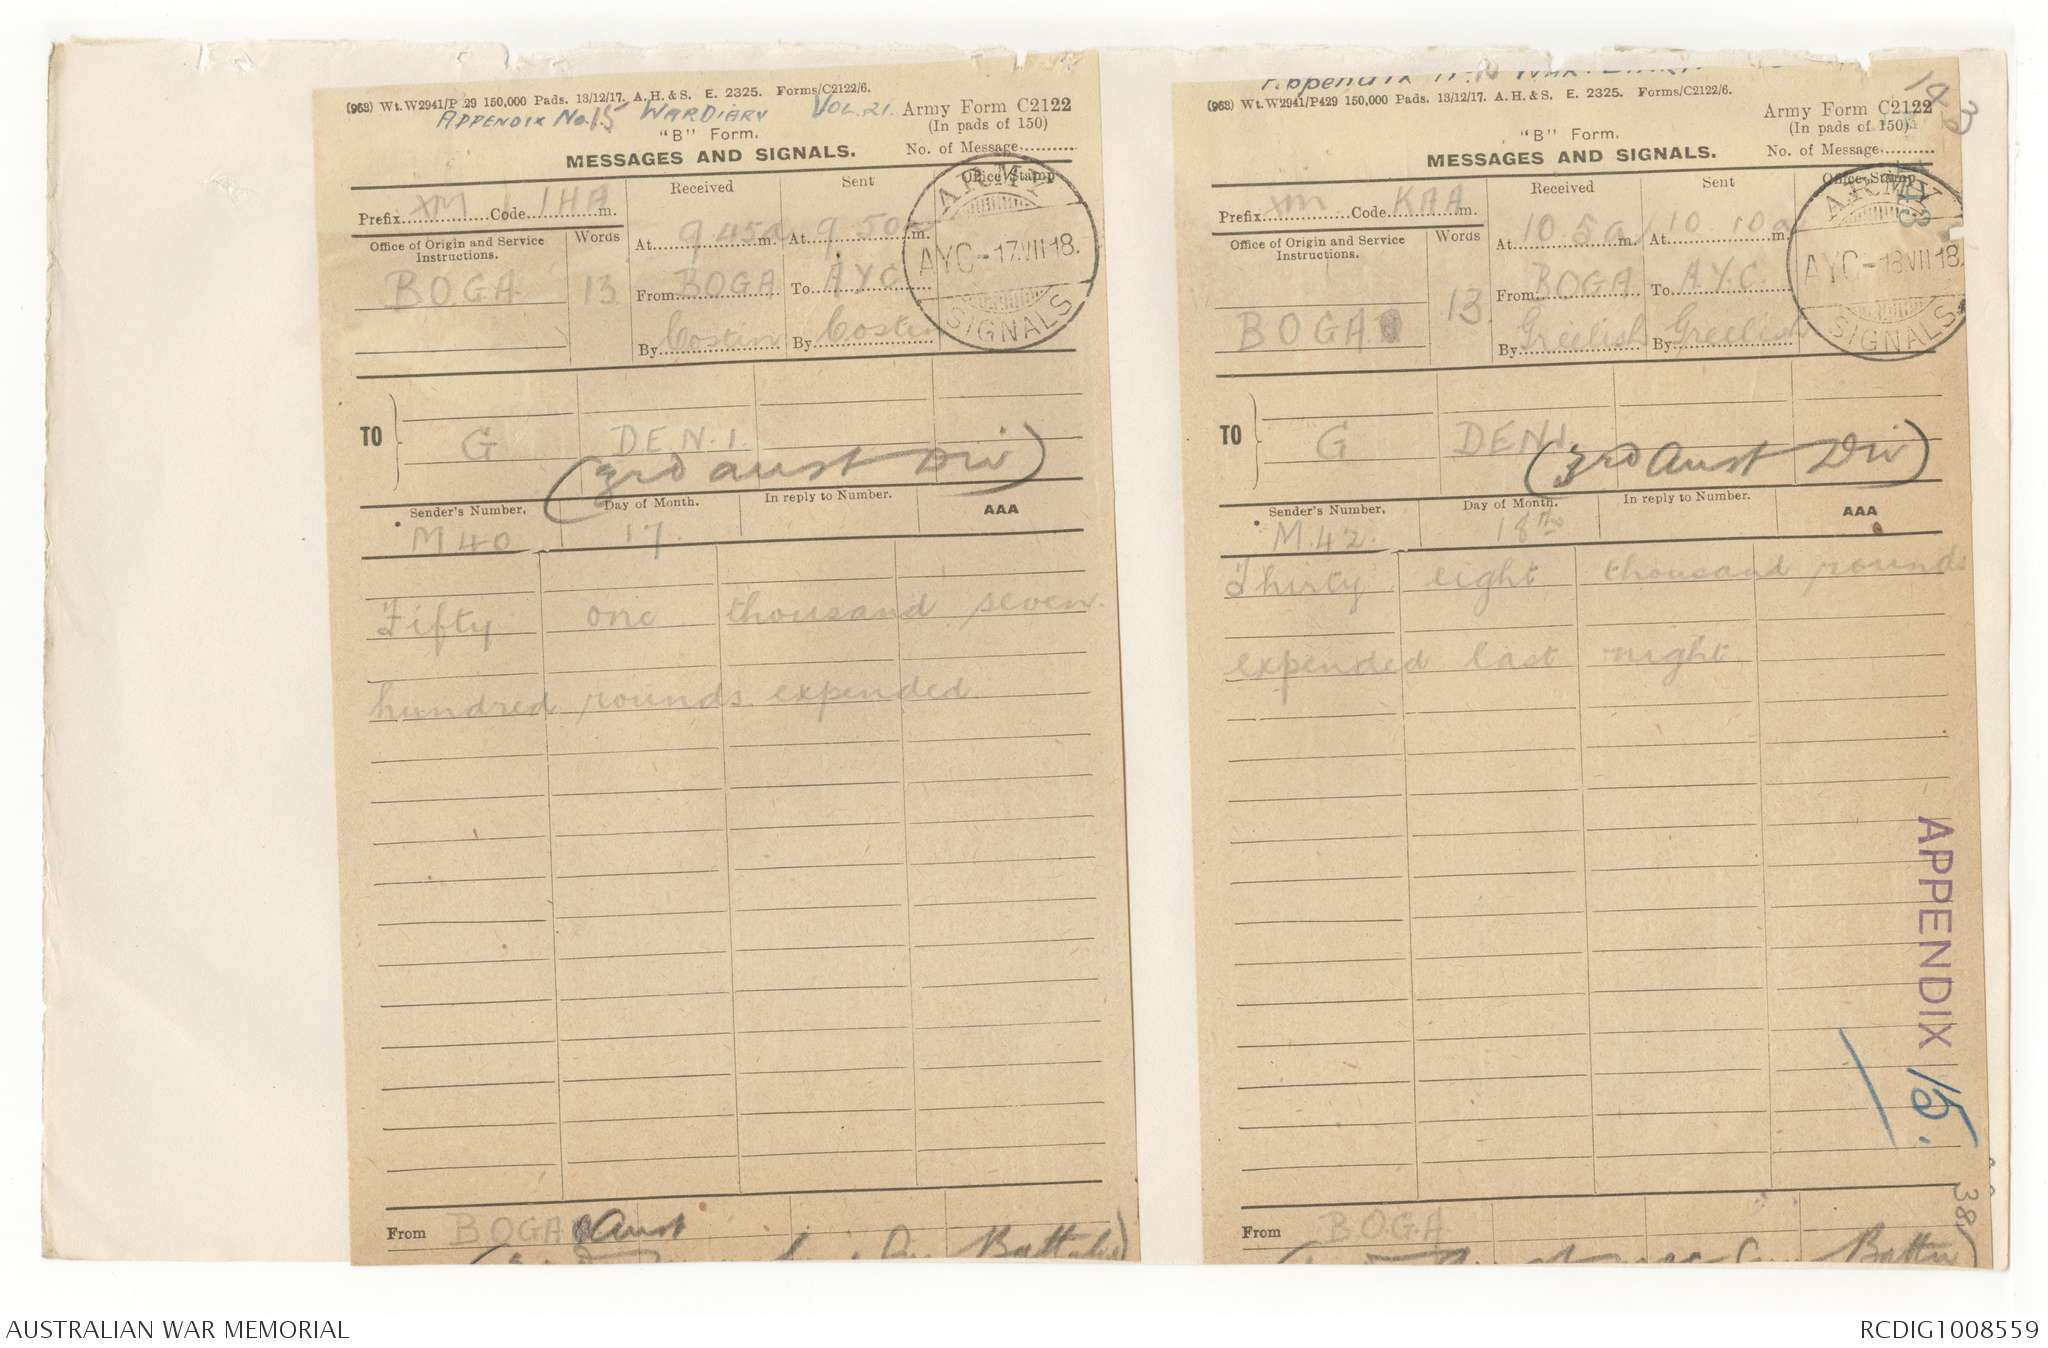 (968) Wt. W2941/P 29 150,000 Pads. 13/12/17. A. H. & S. E. 2325. Forms/C2122/6.
APPENDIX No. 15 WAR DIARY VOL. 21.
Army Form C2122
(In pads of 150)
"B" Form.
MESSAGES AND SIGNALS.
No. of Message..........
Prefix XM Code 1HA m.
Received
Sent
Office Stamp
At 9 45a m.
At 9 50a m.
Office of Origin and Service Instructions.
Words
BOGA
13
From BOGA
To AYC
By Costin
By Costin
ARMY
AYC -17.VII.18.
SIGNALS
TO
G DEN.1.
(3rd Aust Div)
Sender's Number.
Day of Month.
In reply to Number.
AAA
M 40
17.
Fifty one thousand seven
hundred rounds expended
From BOGA
Aust
Battalion)
Appendix War Diary
143
(968) Wt. W2941/P429 150,000 Pads. 13/12/17. A. H. & S. E. 2325. Forms/C2122/6.
Army Form C2122
(In pads of 150)
"B" Form.
MESSAGES AND SIGNALS.
No. of Message..........
Prefix XM Code KAA m.
Received
Sent
Office Stamp
At 10 5a m.
At 10 10a m.
Office of Origin and Service Instructions.
Words
BOGA
13.
From BOGA
To AYC.
By Greelish
By Greelish
ARMY
AYC -18VII18.
SIGNALS
TO
G DEN1.
(3rd Aust Div)
Sender's Number.
Day of Month.
In reply to Number.
AAA
M.42.
18th
Thirty eight thousand rounds
expended last night.
APPENDIX 15.
38
From BOGA
AUSTRALIAN WAR MEMORIAL
RCDIG1008559